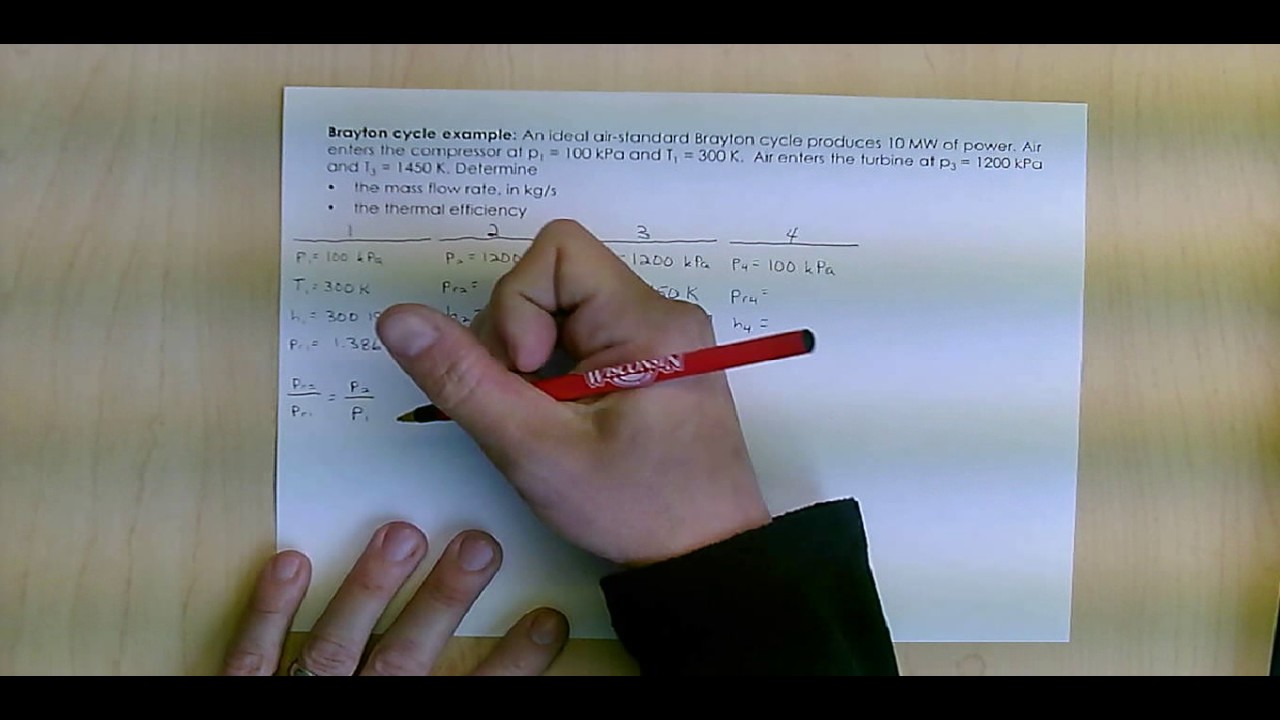 Brayton cycle example: An ideal air-standard Brayton cycle produces 10 MW of power. Air
enters the compressor at p₁ = 100 kPa and T₁ = 300 K. Air enters the turbine at p₃ = 1200 kPa
and T₃ = 1450 K. Determine
• the mass flow rate, in kg/s
• the thermal efficiency
1 2 3 4
P₁ = 100 kPa P₂ = 1200 = 1200 kPa P₄ = 100 kPa
T₁ = 300 K Pr₂ = 50 K Pr₄ =
h₁ = 300.19 h₂ = h₄ =
Pr₁ = 1.386
Pr₂ / Pr₁ = P₂ / P₁
WISCONSIN